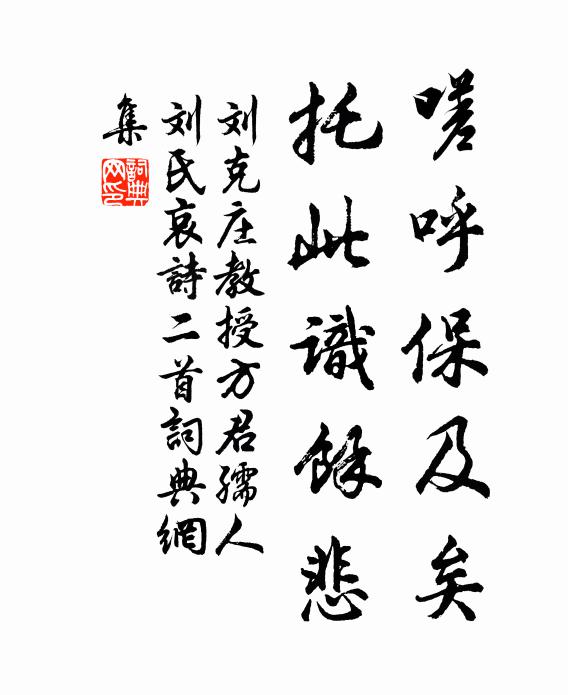 嗟呼保及矣
托此識餘悲
刘克庄教授方君孺人
刘氏哀詩二首詞典網
集
詞典
网印